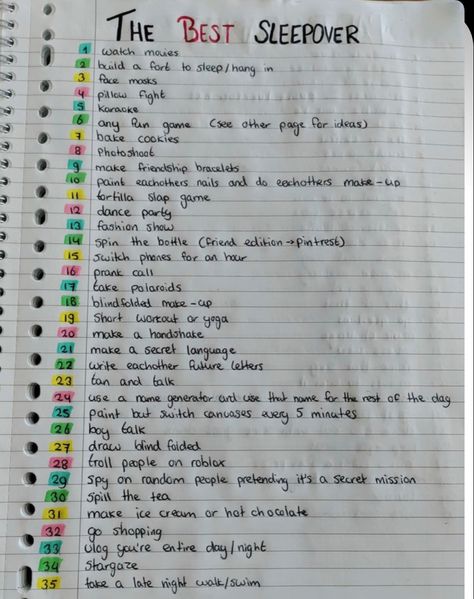 THE BEST SLEEPOVER
1 watch movies
2 build a fort to sleep/hang in
3 face masks
4 pillow fight
5 karaoke
6 any fun game (see other page for ideas)
7 bake cookies
8 Photoshoot
9 make friendship bracelets
10 paint eachothers nails and do eachothers make-up
11 tortilla slap game
12 dance party
13 fashion show
14 spin the bottle (friend edition → pintrest)
15 switch phones for an hour
16 prank call
17 take polaroids
18 blindfolded make-up
19 short workout or yoga
20 make a handshake
21 make a secret language
22 write eachother future letters
23 tan and talk
24 use a name generator and use that name for the rest of the day
25 paint but switch canvases every 5 minutes
26 boy talk
27 draw blind folded
28 troll people on roblox
29 spy on random people pretending it's a secret mission
30 spill the tea
31 make ice cream or hot chocolate
32 go shopping
33 vlog you're entire day/night
34 Stargaze
35 take a late night walk/swim